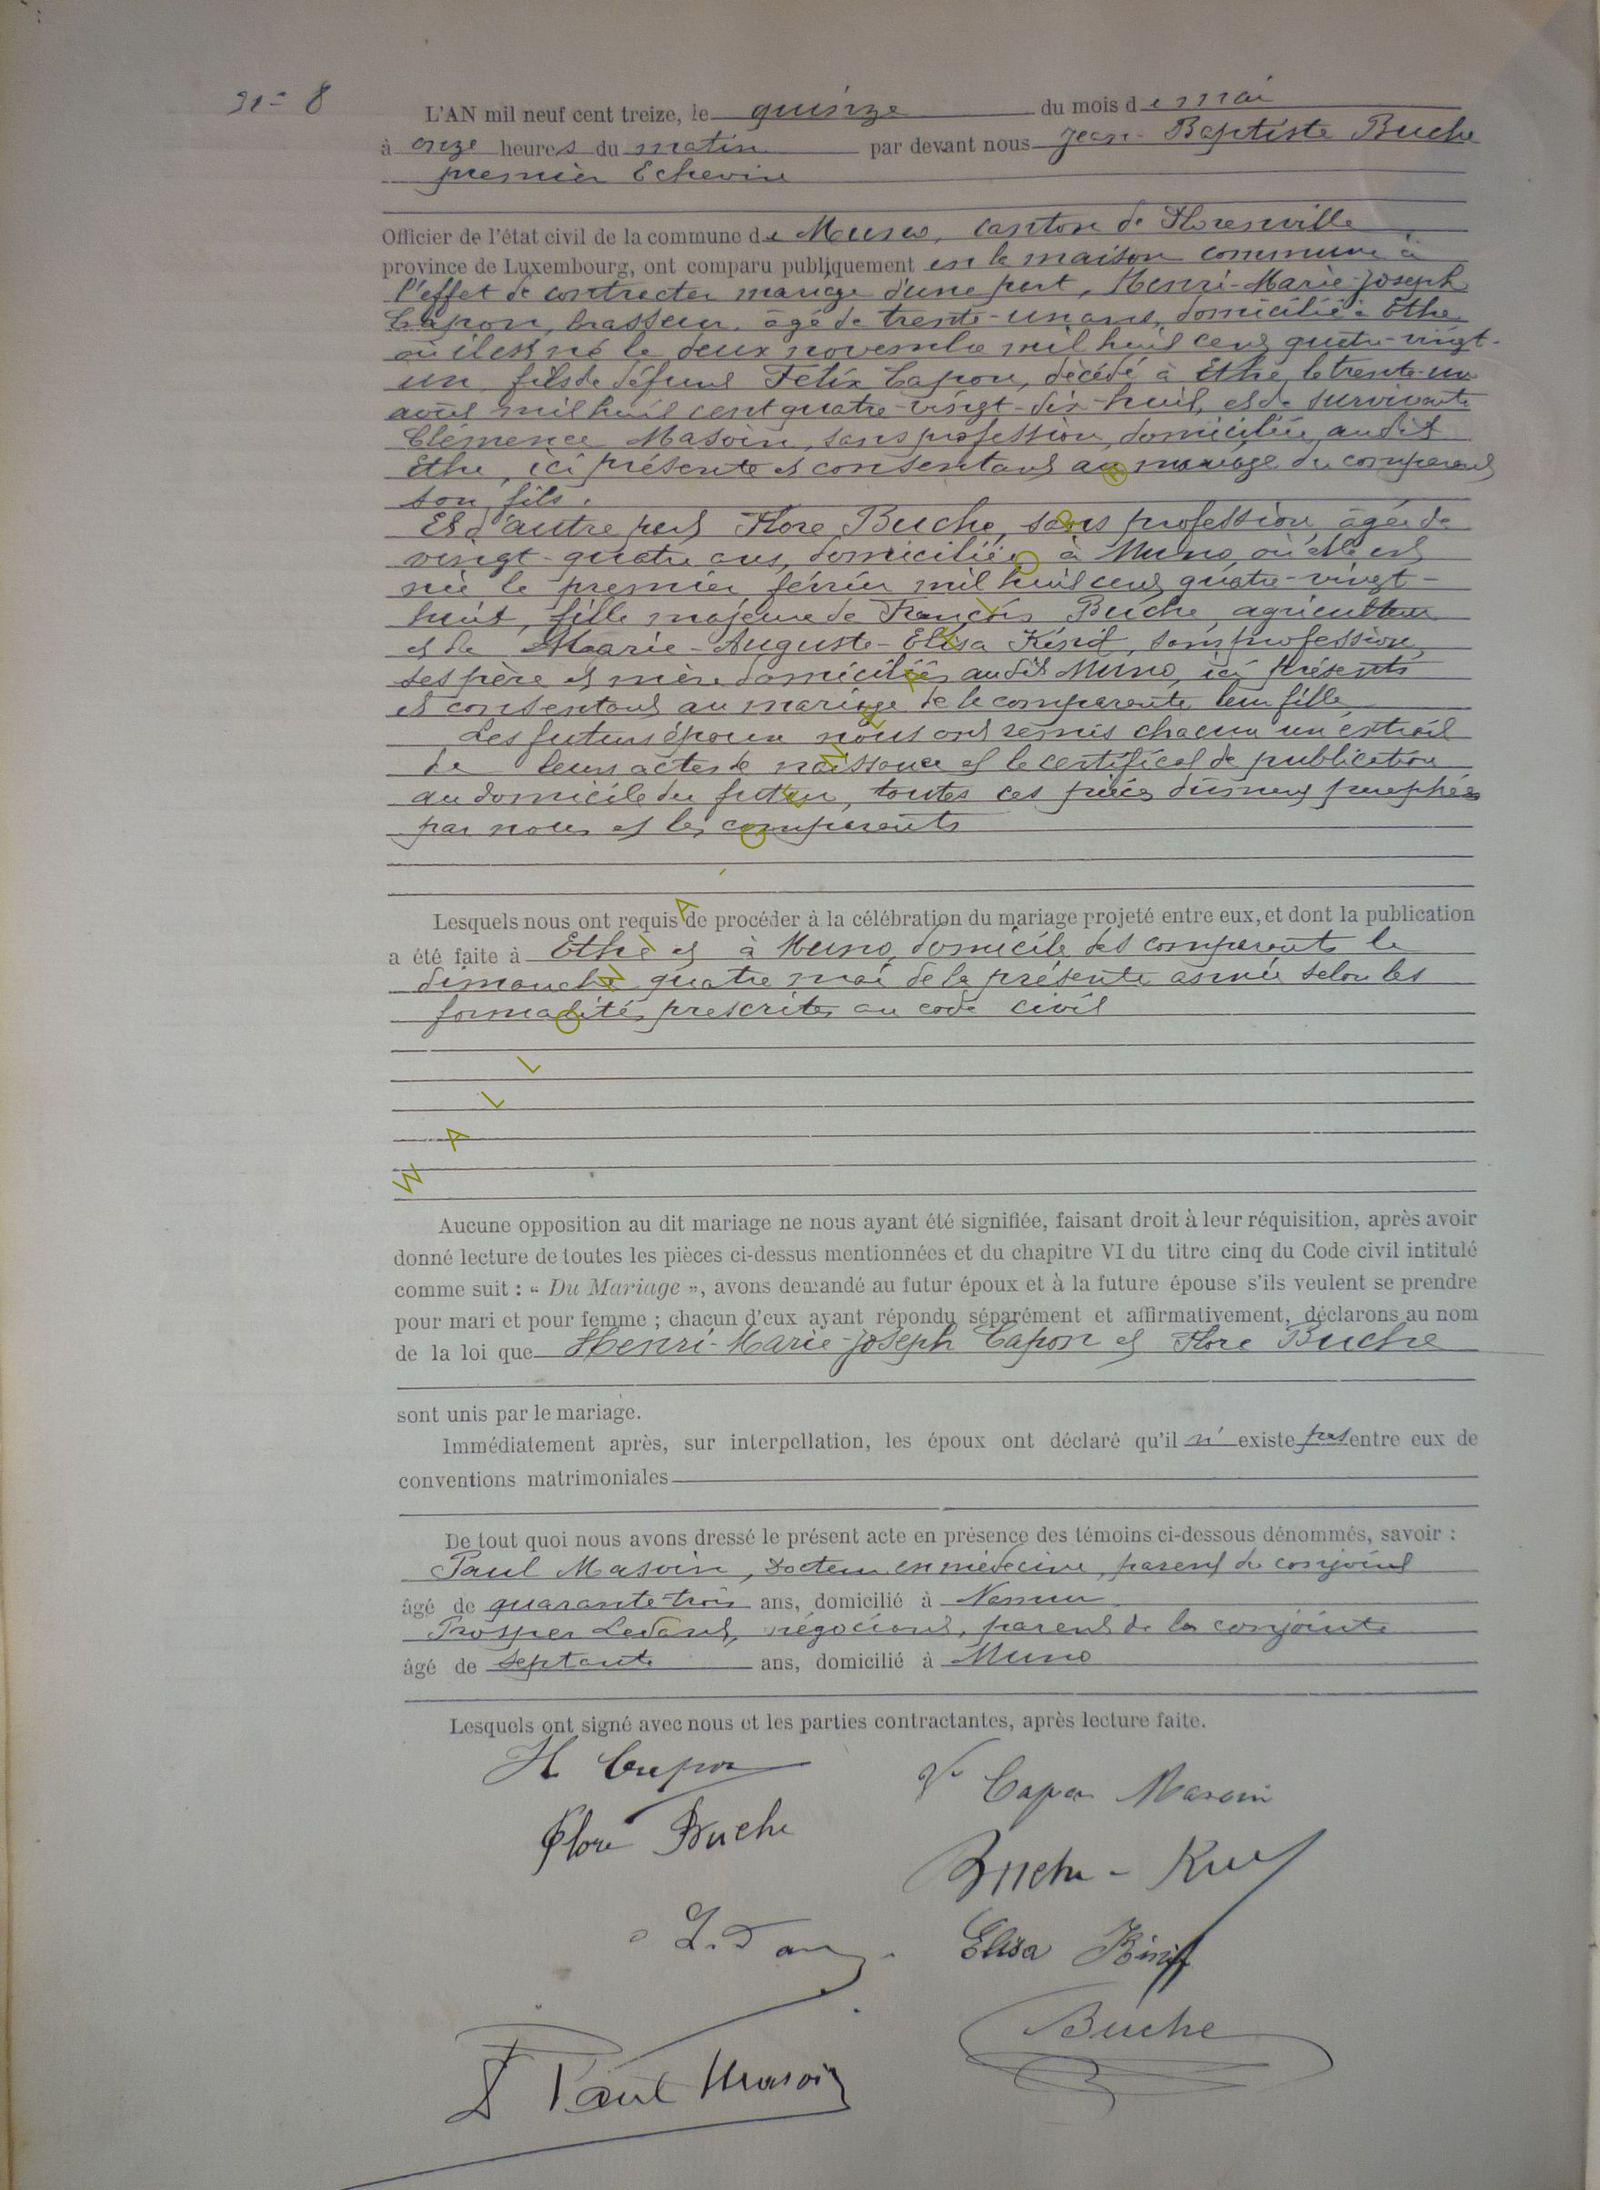 N° 8
L'AN mil neuf cent treize, le quinze du mois de mai
à onze heures du matin par devant nous Jean-Baptiste Buche
premier Echevin
Officier de l'état civil de la commune de Muno, canton de Florenville
province de Luxembourg, ont comparu publiquement en la maison commune à
l'effet de contracter mariage d'une part, Henri-Marie-Joseph
Capon, brasseur, âgé de trente-un ans, domicilié à Ethe
où il est né le deux novembre mil huit cent quatre-vingt-
un fils de défunt Felix Capon, décédé à Ethe, le trente-un
août mil huit cent quatre-vingt-dix-huit, et de survivante
Clémence Masoin, sans profession, domiciliée audit
Ethe, ici présente et consentant au mariage du comparant
son fils.
Et d'autre part Flore Buche, sans profession, âgée de
vingt-quatre ans, domiciliée à Muno, où elle est
née le premier février mil huit cent quatre-vingt-
huit, fille majeure de François Buche, agriculteur
et de Marie-Auguste-Elisa Kinif, sans profession,
ses père et mère domiciliés audit Muno, ici présents
et consentant au mariage de la comparante leur fille,
Les futurs époux nous ont remis chacun un extrait
de leurs actes de naissance et le certificat de publication
au domicile du futur, toutes ces pièces dûment paraphées
par nous et les comparents
Lesquels nous ont requis de procéder à la célébration du mariage projeté entre eux, et dont la publication
a été faite à Ethe et à Muno, domicile des comparents le
dimanche quatre mai de la présente année selon les
formalités prescrites au code civil
Aucune opposition au dit mariage ne nous ayant été signifiée, faisant droit à leur réquisition, après avoir
donné lecture de toutes les pièces ci-dessus mentionnées et du chapitre VI du titre cinq du Code civil intitulé
comme suit : « Du Mariage », avons demandé au futur époux et à la future épouse s'ils veulent se prendre
pour mari et pour femme ; chacun d'eux ayant répondu séparément et affirmativement, déclarons au nom
de la loi que Henri-Marie-Joseph Capon et Flore Buche
sont unis par le mariage.
Immédiatement après, sur interpellation, les époux ont déclaré qu'il n' existe pas entre eux de
conventions matrimoniales
De tout quoi nous avons dressé le présent acte en présence des témoins ci-dessous dénommés, savoir :
Paul Masoin, Docteur en médecine, parent du conjoint
âgé de quarante-trois ans, domicilié à Namur
Prosper Ledant, négociant, parent de la conjointe
âgé de septante ans, domicilié à Muno
Lesquels ont signé avec nous et les parties contractantes, après lecture faite.
H Capon
Ve Capon Masoin
Flore Buche
Buche-
Elisa Kinif
Buche
Paul Masoin
WALLONIA - GENEALOGIE